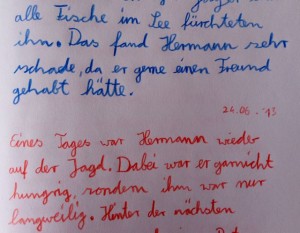 alle Fische im See fürchteten
ihn. Das fand Hermann sehr
schade, da er gerne einen Freund
gehabt hätte.
26.06.'13
Eines Tages war Hermann wieder
auf der Jagd. Dabei war er garnicht
hungrig, sondern ihm war nur
langweilig. Hinter der nächsten